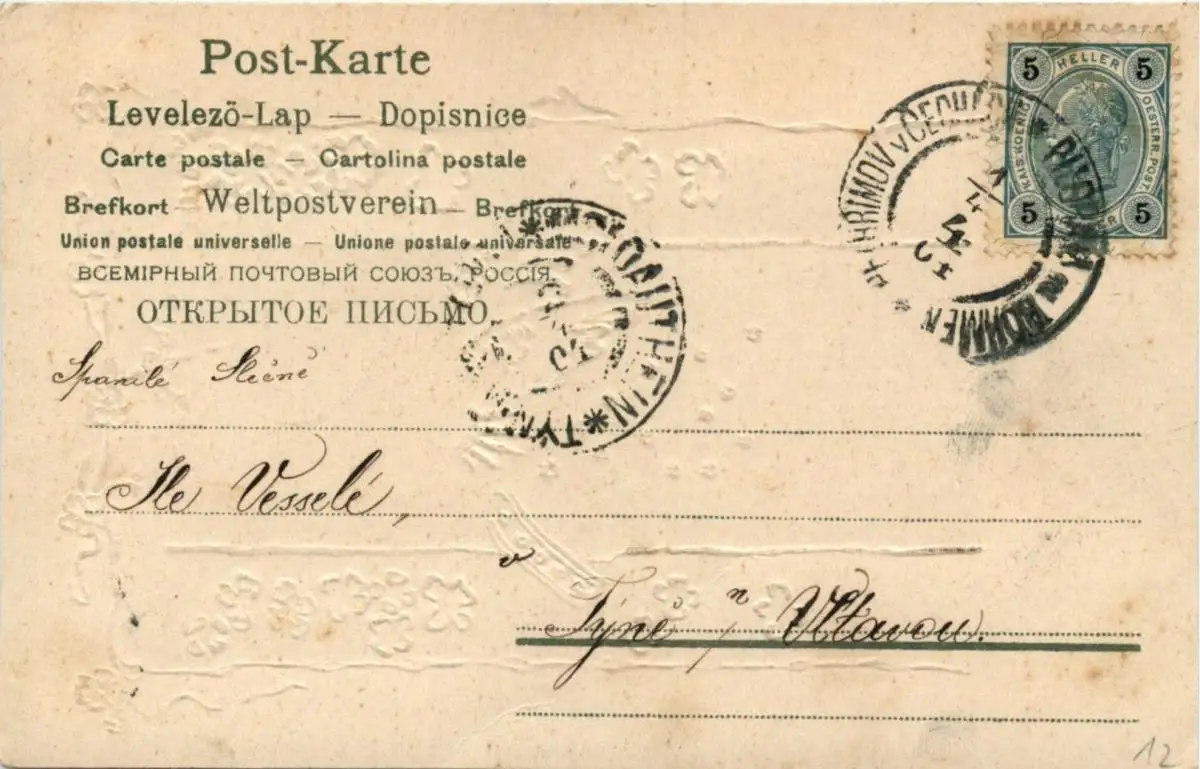 Post-Karte
Levelezõ-Lap — Dopisnice
Carte postale — Cartolina postale
Brefkort — Weltpostverein — Brefkort
Union postale universelle — Unione postale universale
ВСЕМІРНЫЙ ПОЧТОВЫЙ СОЮЗЪ. РОССІЯ.
ОТКРЫТОЕ ПИСЬМО.
5 HELLER 5
KAIS. KOENIGL. OESTERR. POST.
5 HELLER 5
PEHŘIMOV v ČECHÁCH * BÖHMEN *
4
04
MOLDAUTHEIN * TÝN
04
Spanilé Slečně
Vesselé,
v
Týně n/ Vltavou.
12